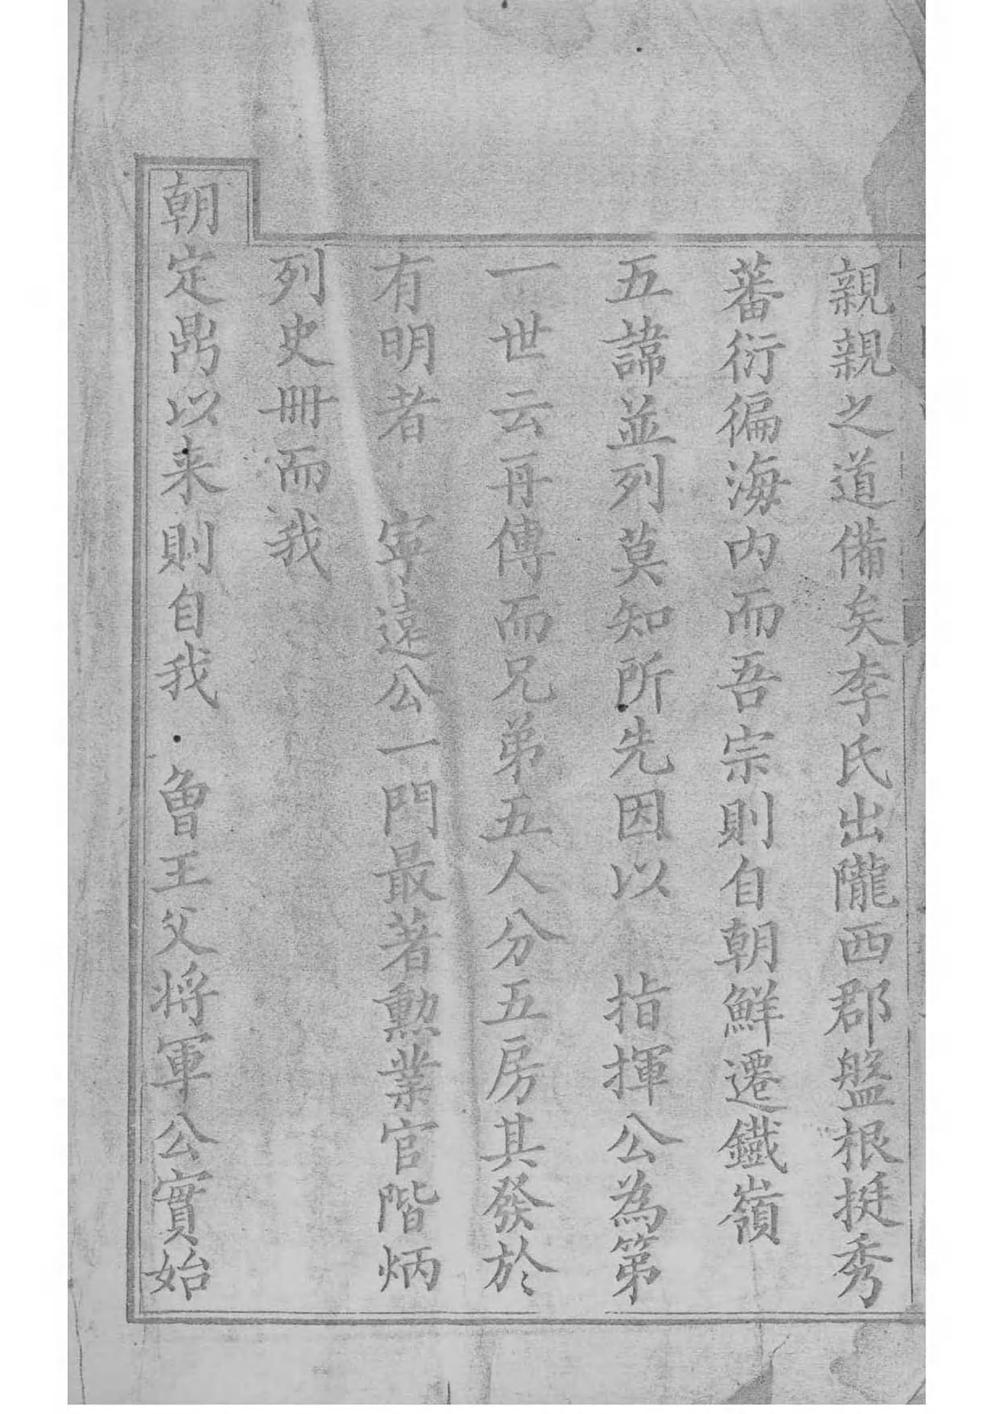 親親之道備矣李氏出隴西郡盤根挺秀
蕃衍徧海内而吾宗則自朝鮮遷鐵嶺
五諱並列莫知所先因以　指揮公為第
一世云再傳而兄弟五人分五房其發於
有明者　寧遠公一門最著勲業官階炳
列史冊而我
朝定鼎以来則自我　曾王父将軍公實始